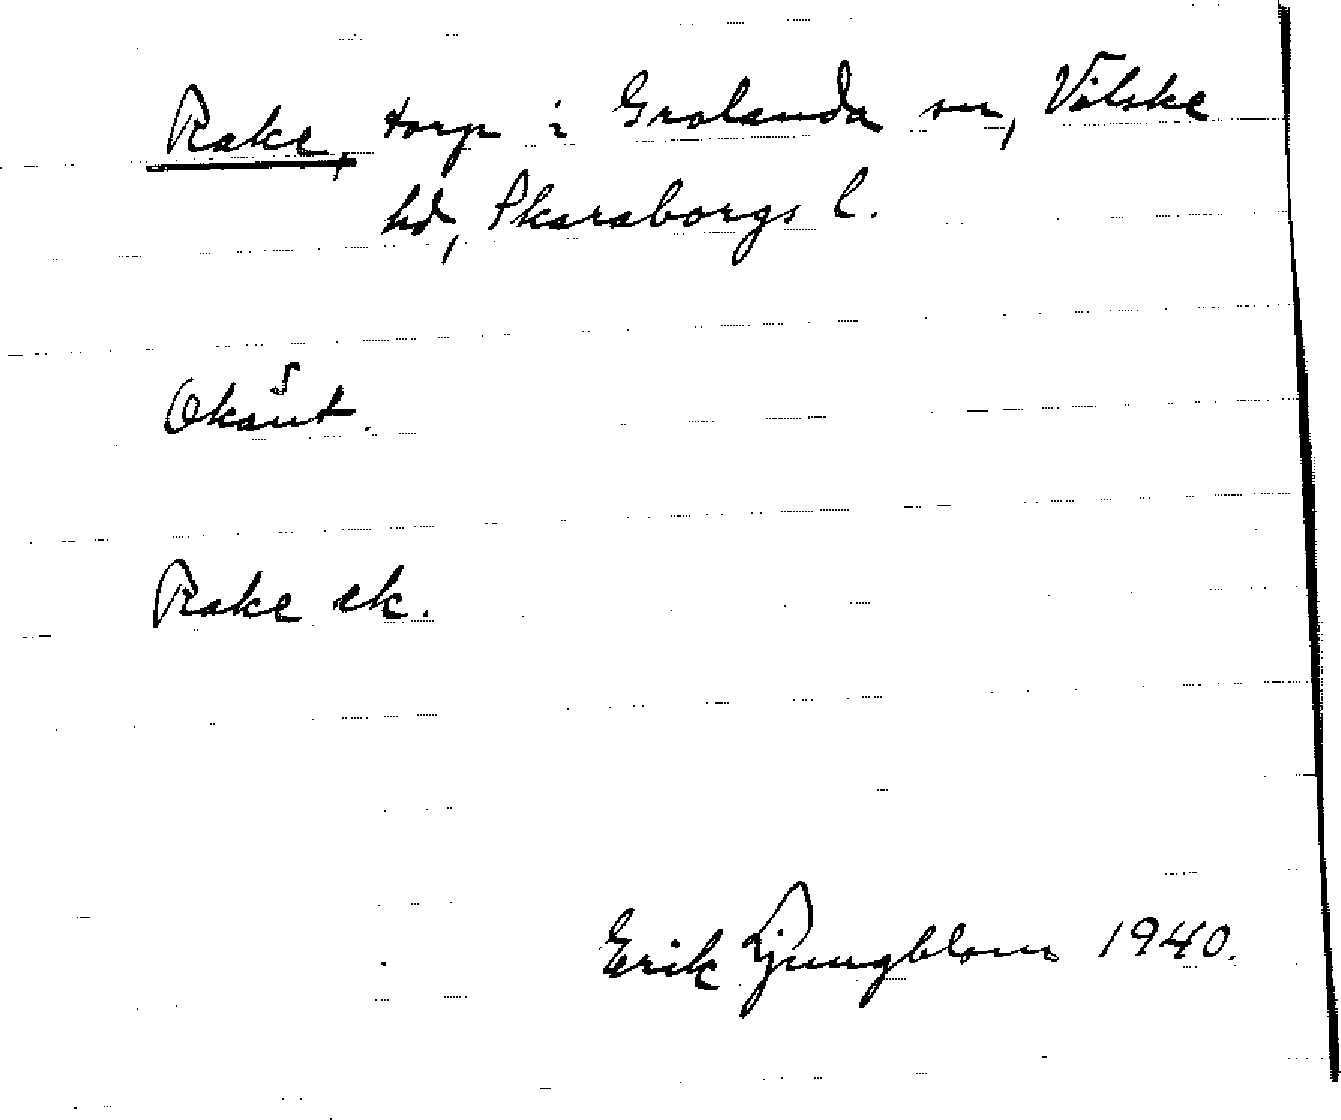 Rake, torp i Grolanda sn, Vilske
hd, Skaraborgs l.
Okänt.
Rake ek.
Erik Ljungblom 1940.